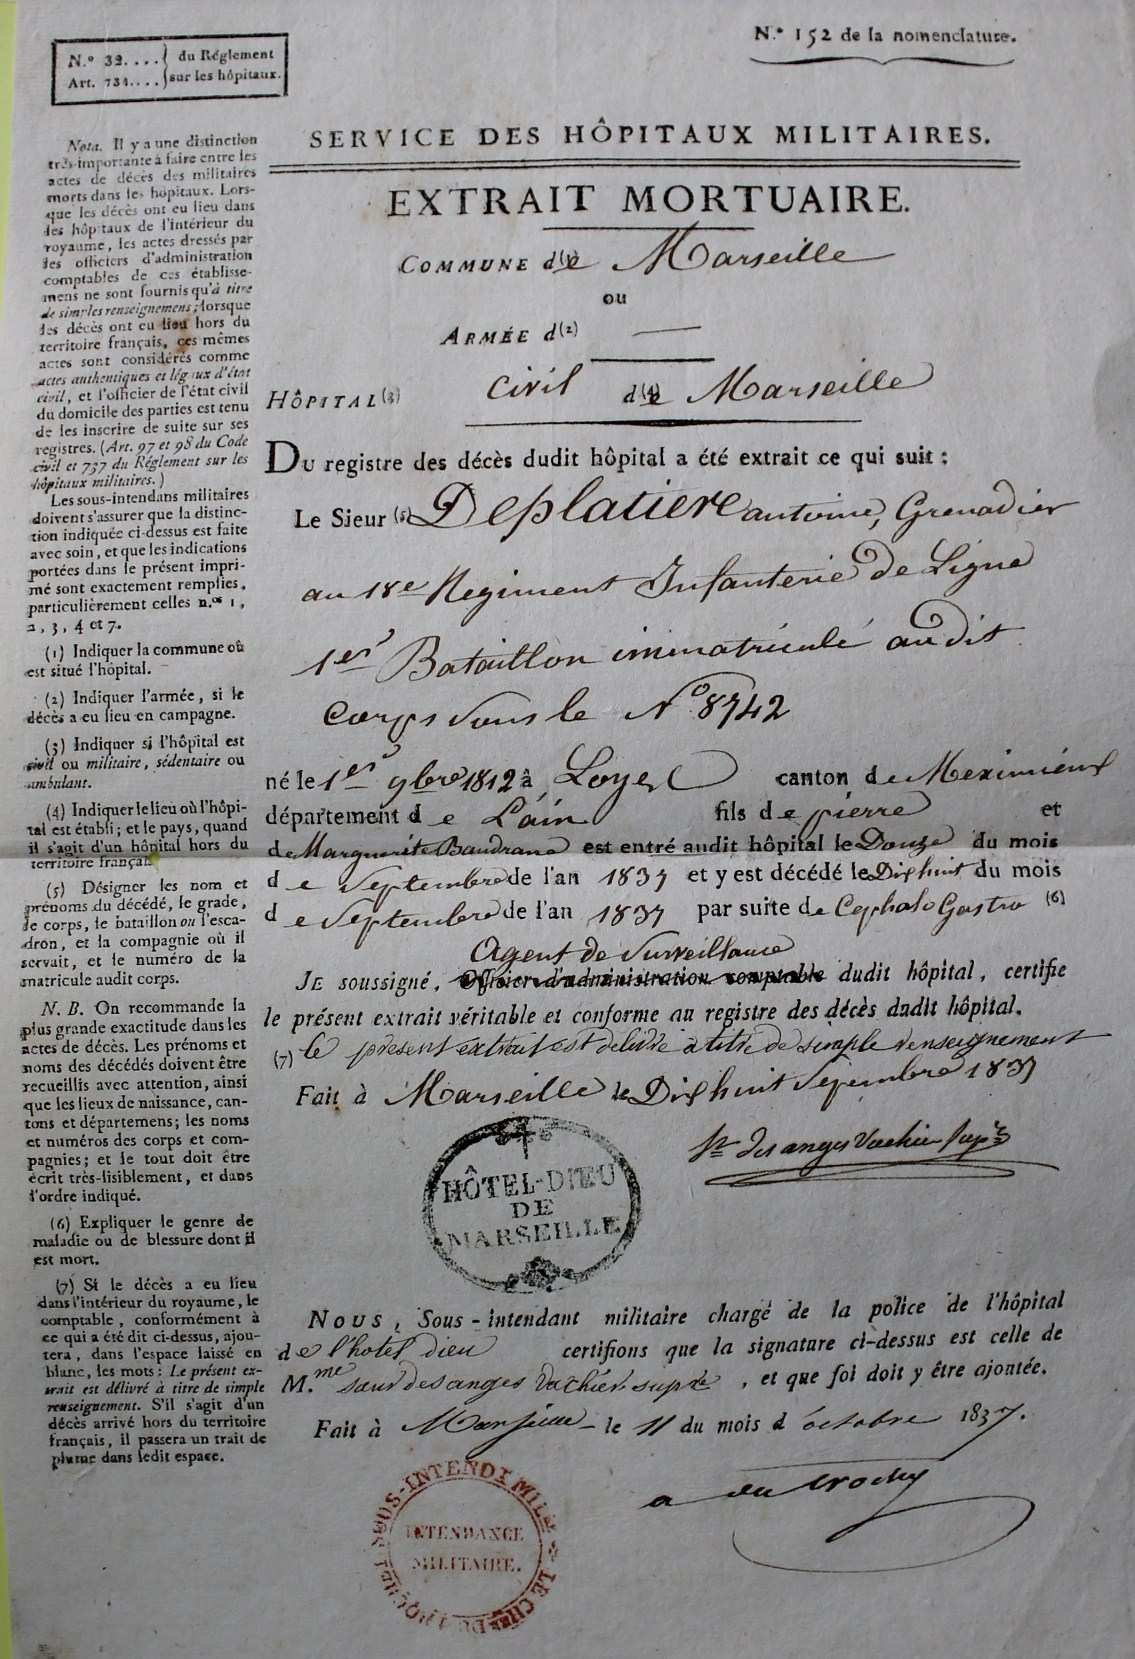 N.º 32....
Art. 731....
du Réglement
sur les hôpitaux.
N.º 152 de la nomenclature.
SERVICE DES HÔPITAUX MILITAIRES.
EXTRAIT MORTUAIRE.
COMMUNE d(1)e Marseille
ou
ARMÉE d(2) —
HÔPITAL (3) civil d(4)e Marseille
Du registre des décès dudit hôpital a été extrait ce qui suit :
Le Sieur (5) Deplatiere antoine, Grenadier
au 18e Regiment Infanterie De Ligne
1er Bataillon immatriculé audit
Corps sous le Nº 8742
né le 1er 9bre 1812 à Loyes canton de Meximieux
département de L'ain fils de pierre et
de Marguerite Baudrand est entré audit hôpital le Douze du mois
de Septembre de l'an 1837 et y est décédé le Dix huit du mois
de Septembre de l'an 1837 par suite de Cephalo Gastro (6)
Agent de Surveillance
JE soussigné, Officier d'administration comptable dudit hôpital, certifie
le présent extrait véritable et conforme au registre des décès dudit hôpital.
(7) le present extrait est delivré à titre de simple renseignement
Fait à Marseille le Dix huit Sepembre 1837
Sr des anges Vachier supre
HÔTEL-DIEU
DE
MARSEILLE
NOUS, Sous-intendant militaire chargé de la police de l'hôpital
de l'hotel dieu certifions que la signature ci-dessus est celle de
M.me sœur des anges Vachier supre, et que foi doit y être ajoutée.
Fait à Marseille le 11 du mois d'octobre 1837.
SOUS-INTENDT MILRE
INTENDANCE
MILITAIRE.
Nota. Il y a une distinction
très-importante à faire entre les
actes de décès des militaires
morts dans les hôpitaux. Lors-
que les décès ont eu lieu dans
les hôpitaux de l'intérieur du
royaume, les actes dressés par
les officiers d'administration
comptables de ces établisse-
mens ne sont fournis qu'à titre
de simples renseignemens ; lorsque
les décès ont eu lieu hors du
territoire français, ces mêmes
actes sont considérés comme
actes authentiques et légaux d'état
civil, et l'officier de l'état civil
du domicile des parties est tenu
de les inscrire de suite sur ses
registres. (Art. 97 et 98 du Code
civil et 737 du Réglement sur les
hôpitaux militaires.)
Les sous-intendans militaires
doivent s'assurer que la distinc-
tion indiquée ci-dessus est faite
avec soin, et que les indications
portées dans le présent impri-
mé sont exactement remplies,
particulièrement celles n.os 1,
2, 3, 4 et 7.
(1) Indiquer la commune où
est situé l'hôpital.
(2) Indiquer l'armée, si le
décès a eu lieu en campagne.
(3) Indiquer si l'hôpital est
civil ou militaire, sédentaire ou
ambulant.
(4) Indiquer le lieu où l'hôpi-
tal est établi ; et le pays, quand
il s'agit d'un hôpital hors du
territoire français.
(5) Désigner les nom et
prénoms du décédé, le grade,
le corps, le bataillon ou l'esca-
dron, et la compagnie où il
servait, et le numéro de la
matricule audit corps.
N. B. On recommande la
plus grande exactitude dans les
actes de décès. Les prénoms et
noms des décédés doivent être
recueillis avec attention, ainsi
que les lieux de naissance, can-
tons et départemens ; les noms
et numéros des corps et com-
pagnies ; et le tout doit être
écrit très-lisiblement, et dans
l'ordre indiqué.
(6) Expliquer le genre de
maladie ou de blessure dont il
est mort.
(7) Si le décès a eu lieu
dans l'intérieur du royaume, le
comptable, conformément à
ce qui a été dit ci-dessus, ajou-
tera, dans l'espace laissé en
blanc, les mots : Le présent ex-
trait est délivré à titre de simple
renseignement. S'il s'agit d'un
décès arrivé hors du territoire
français, il passera un trait de
plume dans ledit espace.